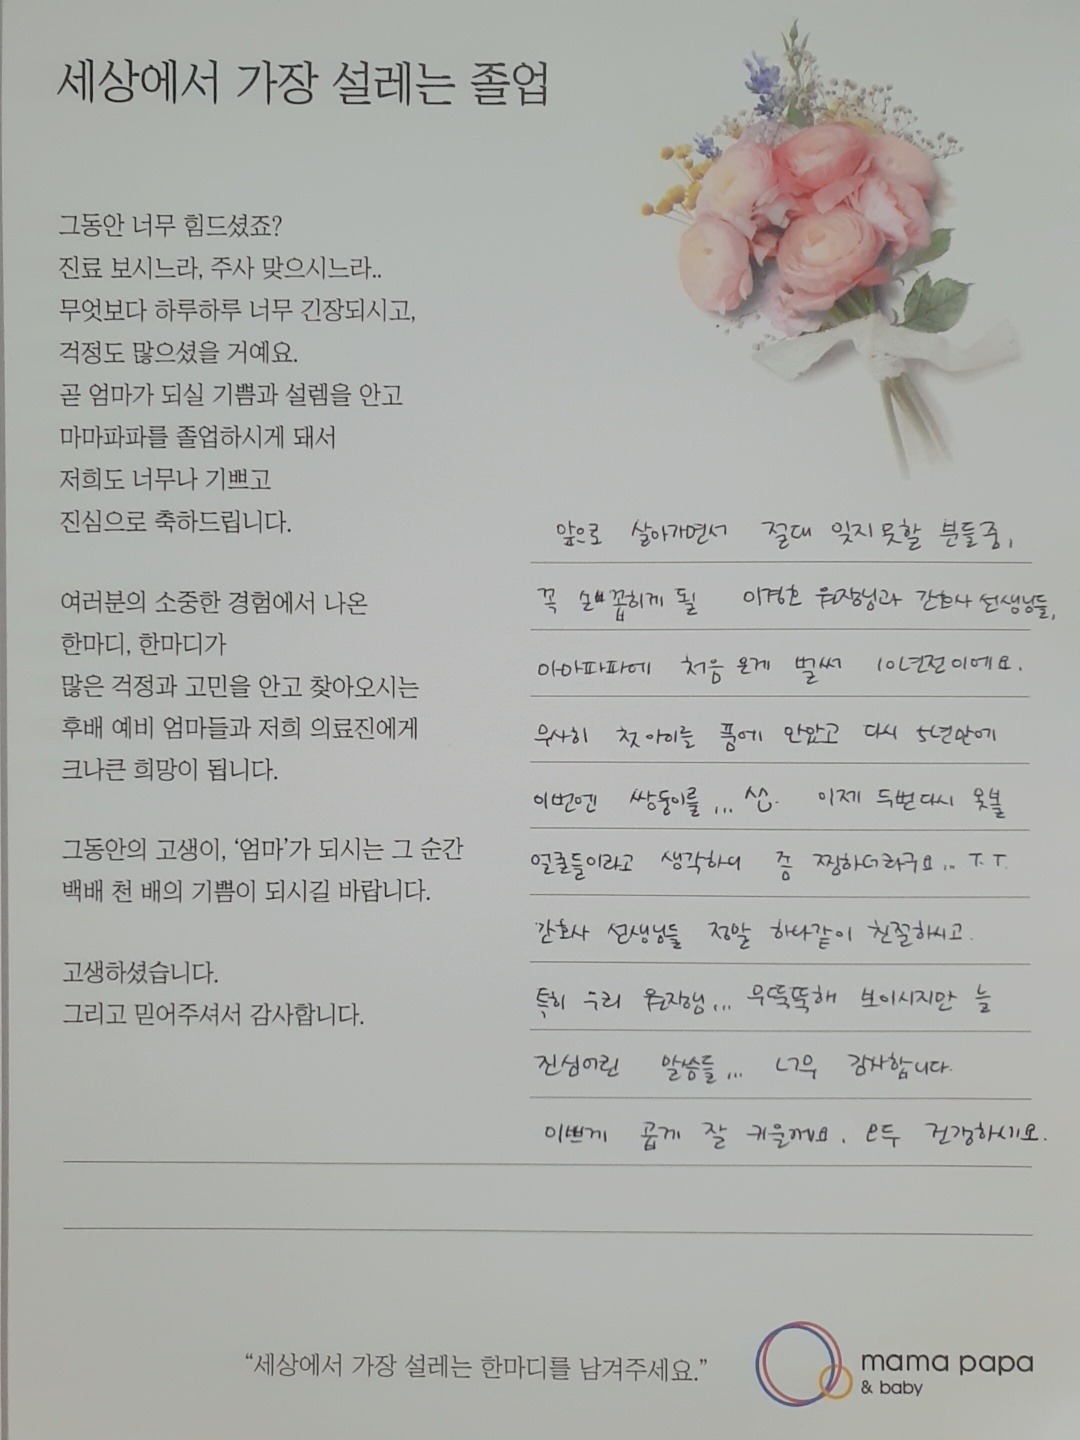 세상에서 가장 설레는 졸업
그동안 너무 힘드셨죠?
진료 보시느라, 주사 맞으시느라..
무엇보다 하루하루 너무 긴장되시고,
걱정도 많으셨을 거예요.
곧 엄마가 되실 기쁨과 설렘을 안고
마마파파를 졸업하시게 돼서
저희도 너무나 기쁘고
진심으로 축하드립니다.
여러분의 소중한 경험에서 나온
한마디, 한마디가
많은 걱정과 고민을 안고 찾아오시는
후배 예비 엄마들과 저희 의료진에게
크나큰 희망이 됩니다.
그동안의 고생이, '엄마'가 되시는 그 순간
백배 천 배의 기쁨이 되시길 바랍니다.
고생하셨습니다.
그리고 믿어주셔서 감사합니다.
앞으로 살아가면서 절대 잊지 못할 분들 중,
꼭 꼽히게 될 이경호 원장님과 간호사 선생님들,
마마파파에 처음 온게 벌써 10년전이에요.
무사히 첫 아이를 품에 안았고 다시 5년만에
이번엔 쌍둥이를... 이제 두번다시 못볼
얼굴들이라고 생각하니 좀 찡하더라구요... T.T.
간호사 선생님들 정말 하나같이 친절하시고.
특히 우리 원장님... 무뚝뚝해 보이시지만 늘
진심어린 말씀들... 너무 감사합니다.
이쁘게 곱게 잘 키울게요. 모두 건강하세요.
"세상에서 가장 설레는 한마디를 남겨주세요."
mama papa
& baby